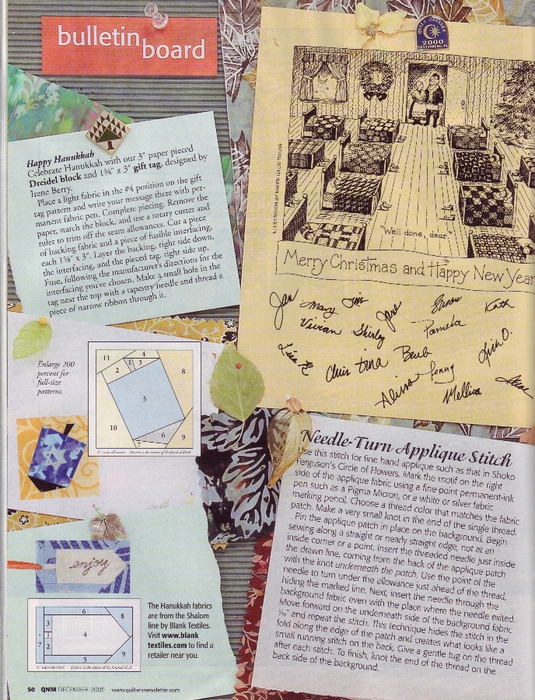 bulletin
board
Happy Hanukkah
Celebrate Hanukkah with our 3" paper pieced
Dreidel block and 1⅜" x 3" gift tag, designed by
Irene Berry.
Place a light fabric in the #4 position on the gift
tag pattern and write your message there with per-
manent fabric pen. Complete piecing. Remove the
paper, starch the block, and use a rotary cutter and
ruler to trim off the seam allowances. Cut a piece
of backing fabric and a piece of fusible interfacing,
each 1⅜" x 3". Layer the backing, right side down,
the interfacing, and the pieced tag, right side up.
Fuse, following the manufacturer's directions for the
interfacing you've chosen. Make a small hole in the
tag near the top with a tapestry needle and thread a
piece of narrow ribbon through it.
2000
"Well done, dear."
Merry Christmas and Happy New Year
Jan Mary Jane Kath
Vivian Shirley Pamela
Chris Tina Barb
Alissa Penny Mellisa
Enlarge 200
percent for
full-size
patterns.
11 4
2 1 3 8
5
10
7 6 9
enjoy
6
3 8
7 1 4
2 9
5
The Hanukkah fabrics
are from the Shalom
line by Blank Textiles.
Visit www.blank
textiles.com to find a
retailer near you.
Needle-Turn Applique Stitch
Use this stitch for fine hand applique such as that in Shoko
Ferguson's Circle of Flowers. Mark the motif on the right
side of the applique fabric using a fine-point permanent-ink
pen such as a Pigma Micron, or a white or silver fabric
marking pencil. Choose a thread color that matches the fabric
patch. Make a very small knot in the end of the single thread.
Pin the applique patch in place on the background. Begin
sewing along a straight or nearly straight edge, not at an
inside corner or a point. Insert the threaded needle just inside
the drawn line, coming from the back of the applique patch
with the knot underneath the patch. Use the point of the
needle to turn under the allowance just ahead of the thread,
hiding the marked line. Next, insert the needle through the
background fabric even with the place where the needle exited.
Move forward on the underneath side of the background fabric
⅛" and repeat the stitch. This technique hides the stitch in the
fold along the edge of the patch and creates what looks like a
small running stitch on the back. Give a gentle tug on the thread
after each stitch. To finish, knot the end of the thread on the
back side of the background.
50 QNM DECEMBER 2005 www.quiltersnewsletter.com